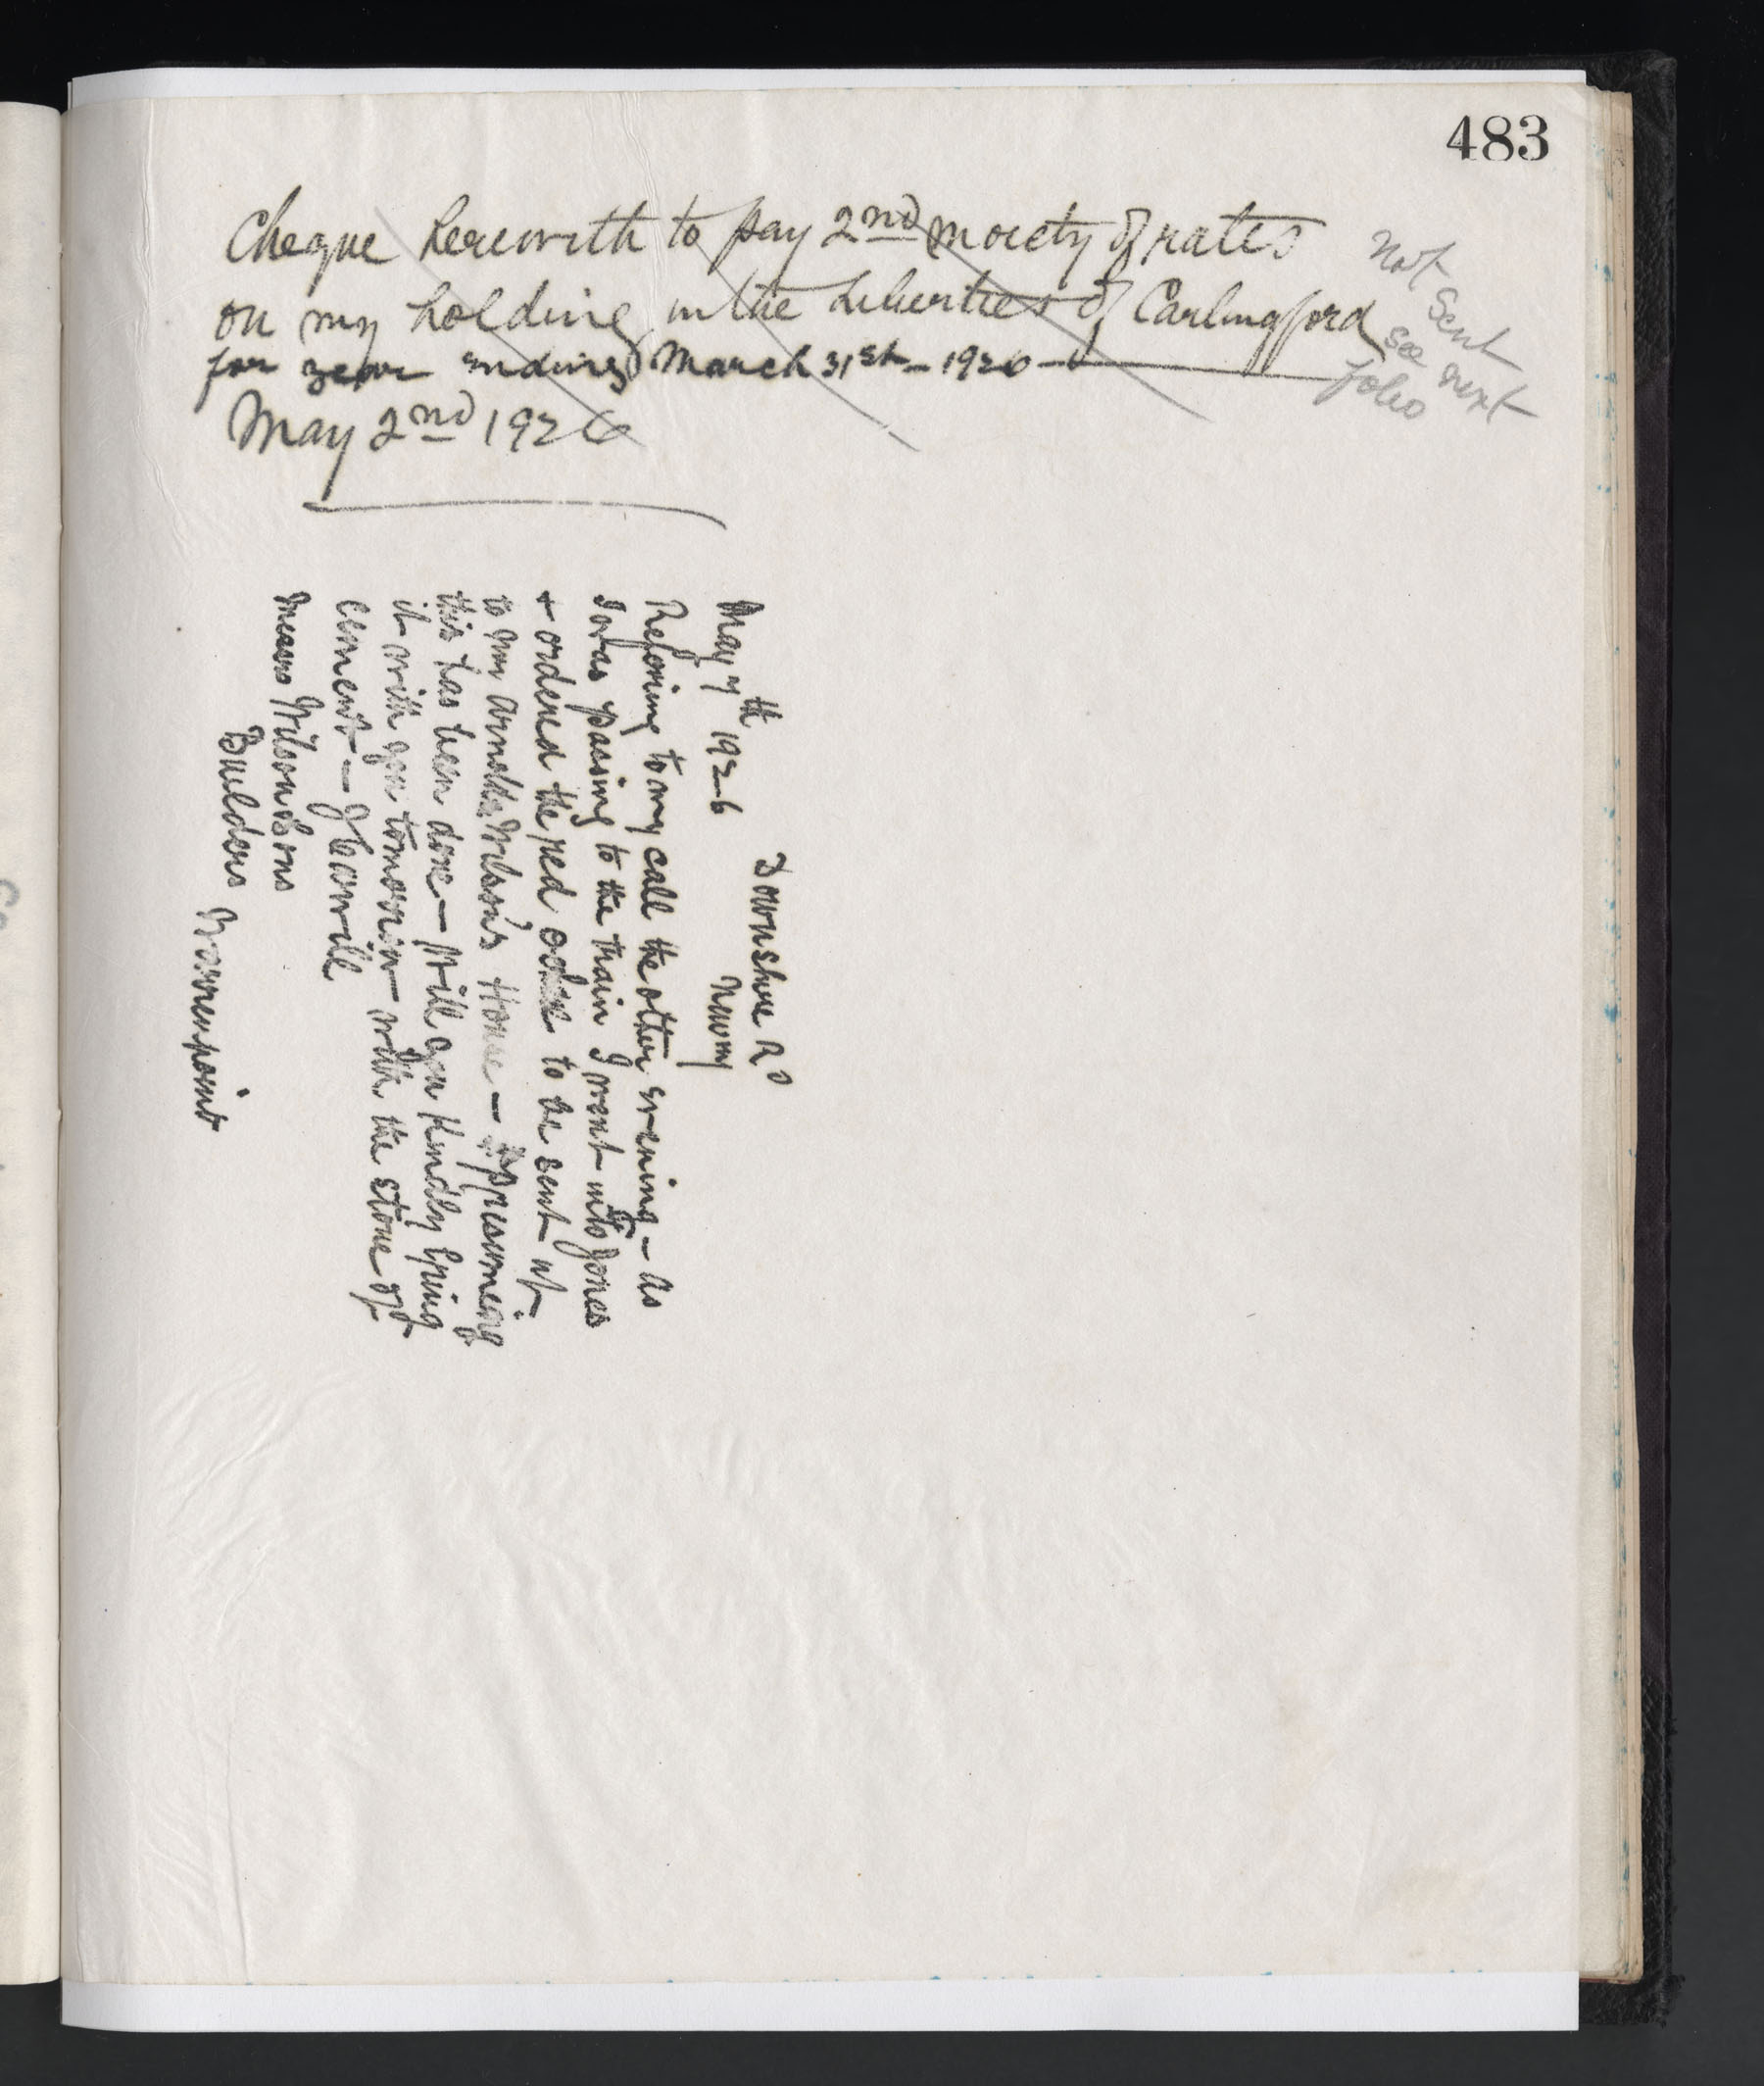 483
Cheque herewith to pay 2nd moiety of rates
on my holding in the Liberties of Carlingford
for year ending March 31st - 1926
May 2nd 1926
Not
Sent
see next
folio
Downshire Rd
Newry
May 7th 1926
Refering to my call the other evening - as
I was passing to the train I went into Jones
+ ordered the red to be sent up
to Mr Arnold Wilson's House - presuming
this has been done - Will you kindly bring
it with you tomorrow - with the stone of
cement -
Messrs Wilson & Sons
Builders
Warrenpoint